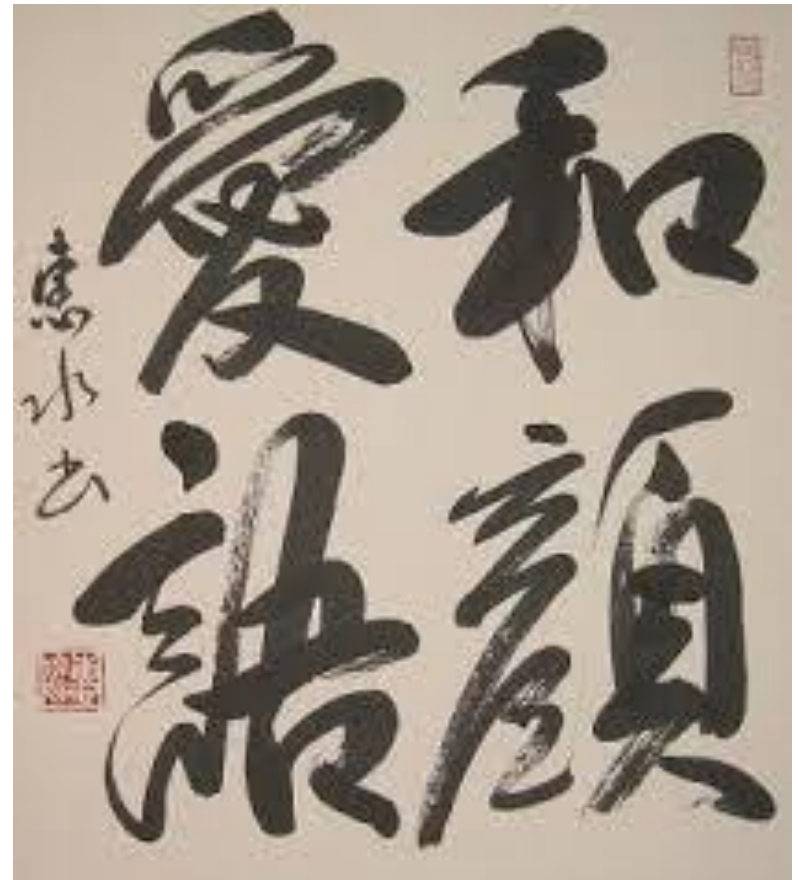 和顔
愛語
恵水書